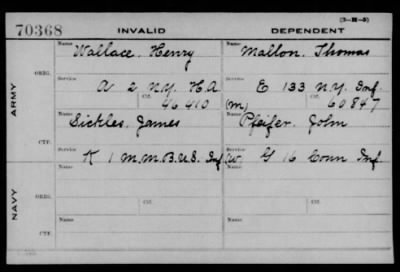 (3-H-3)
70368 INVALID DEPENDENT
Name Name
Wallace, Henry Mallon, Thomas
ORIG.
Service Service
A 2 N.Y. H.A. E 133 N.Y. Inf.
Ctf. Ctf.
46410 (m) 60847
ARMY
Name Name
Sickles, James Pfeifer, John
CTF.
Service Service
K 1 M.M.B. U.S. Inf (W. G 16 Conn Inf.
NAVY
Name Name
ORIG.
Ctf. Ctf.
Name Name
CTF.